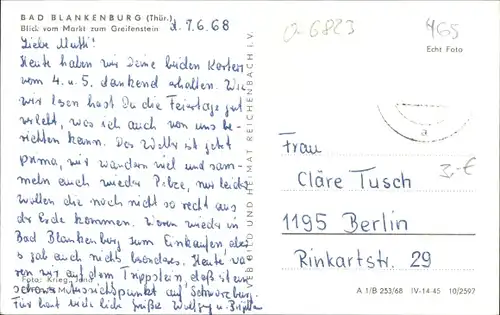 BAD BLANKENBURG (Thür.)
Blick vom Markt zum Greifenstein
d. 7.6.68
Liebe Mutti!
Heute haben wir Deine beiden Karten
vom 4. u. 5. dankend erhalten. Wie
wir lesen hast Du die Feiertage gut
verlebt, was ich auch von uns be-
richten kann. Das Wetter ist jetzt
prima, wir wandern viel und sam-
meln auch wieder Pilze, nur leider
wollen die noch nicht so recht aus
der Erde kommen. Waren wieder in
Bad Blankenburg zum Einkaufen aber
es gab auch nichts besonderes. Heute wa-
ren wir auf dem Trippstein das ist ein
schöner Aussichtspunkt auf Schwarzburg.
Für heut viele liebe Grüße Wolfgang u. Brigitte
Foto: Krieg, Jena
VEB BILD UND HEIMAT REICHENBACH I. V.
465
Echt Foto
a
Frau
Cläre Tusch
1195 Berlin
Rinkartstr. 29
A 1/B 253/68 IV-14-45 10/2597